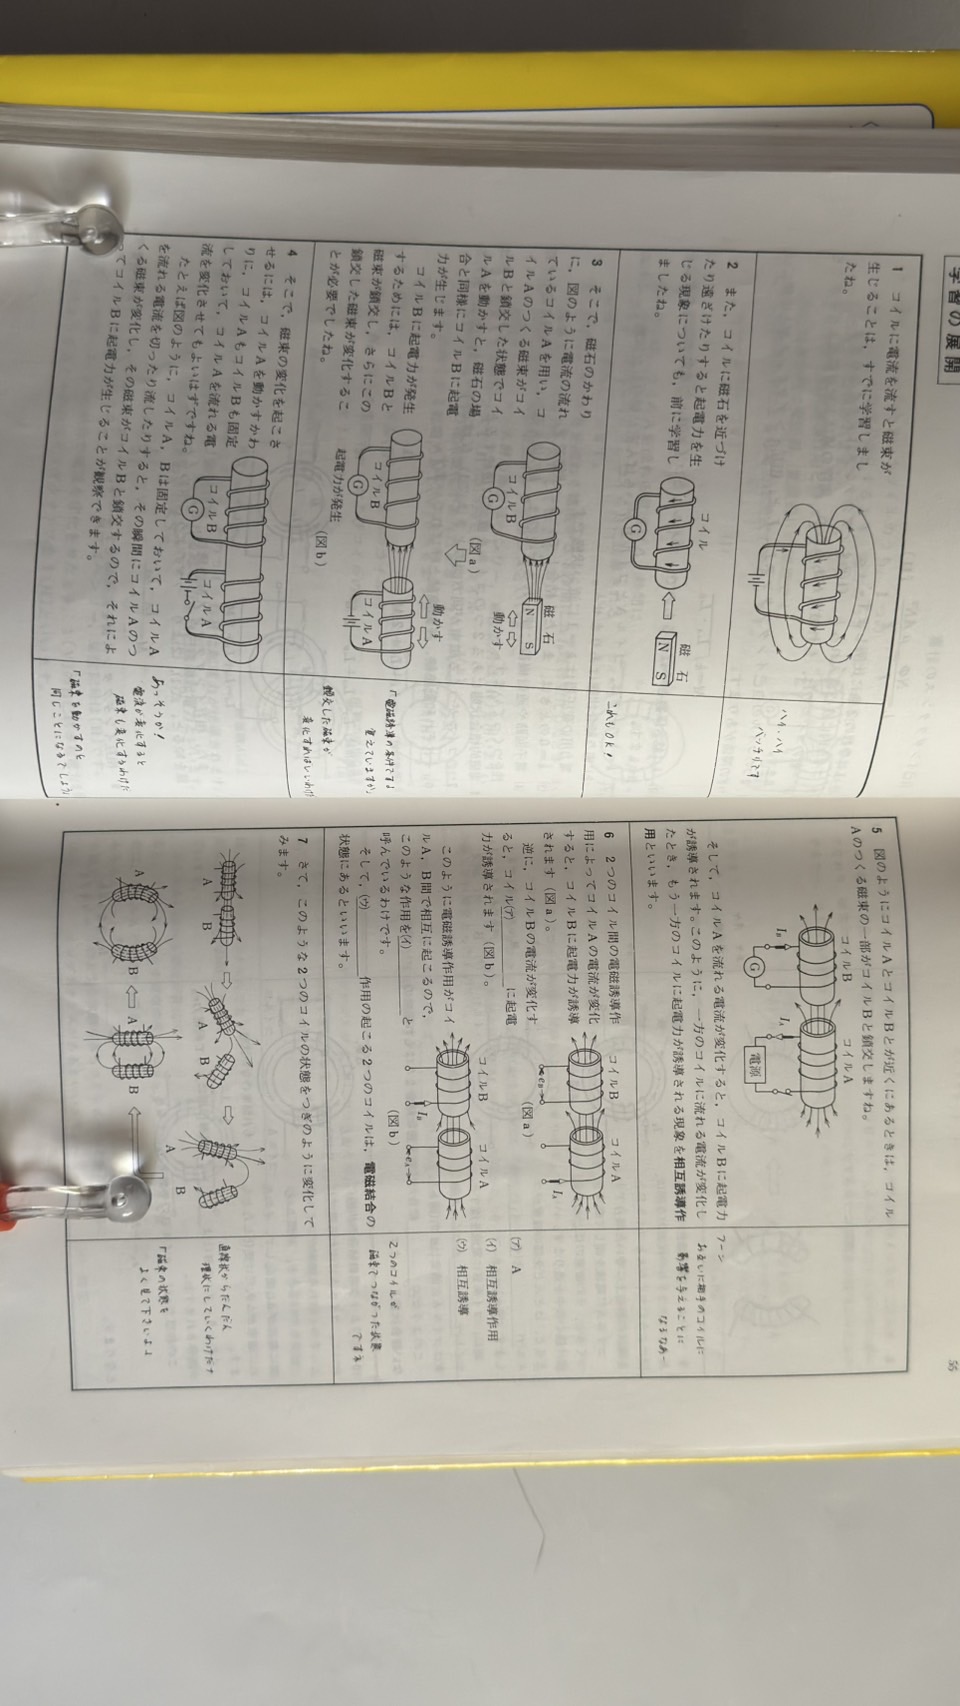 学習の展開
1 コイルに電流を流すと磁束が
生じることは，すでに学習しまし
たね。
ハイ・ハイ
バッチリです
2 また，コイルに磁石を近づけ
たり遠ざけたりすると起電力を生
じる現象についても，前に学習し
ましたね。
コイル
G
磁石
N S
これもOK！
3 そこで，磁石のかわり
に，図のように電流の流れ
ているコイルAを用い，コ
イルAのつくる磁束がコイ
ルBと鎖交した状態でコイ
ルAを動かすと，磁石の場
合と同様にコイルBに起電
力が生じます。
コイルBに起電力が発生
するためには，コイルBと
磁束が鎖交し，さらにこの
鎖交した磁束が変化するこ
とが必要でしたね。
コイルB
G
磁石
N S
動かす
（図a）
動かす
コイルB
G
コイルA
起電力が発生
（図b）
「電磁誘導の条件ですよ
覚えていますか」
鎖交した磁束が
変化すればいいわけ
4 そこで，磁束の変化を起こさ
せるには，コイルAを動かすかわ
りに，コイルAもコイルBも固定
しておいて，コイルAを流れる電
流を変化させてもよいはずですね。
たとえば図のように，コイルA，Bは固定しておいて，コイルA
を流れる電流を切ったり流したりすると，その瞬間にコイルAのつ
くる磁束が変化し，その磁束がコイルBと鎖交するので，それによ
ってコイルBに起電力が生じることが観察できます。
コイルB
コイルA
G
あっそうか！
電流が変化すると
磁束も変化するわけだ
「磁束を動かすのと
同じことになるでしょう
55
5 図のようにコイルAとコイルBとが近くにあるときは，コイル
Aのつくる磁束の一部がコイルBと鎖交しますね。
コイルB
コイルA
IB
IA
G
電源
そして，コイルAを流れる電流が変化すると，コイルBに起電力
が誘導されます。このように，一方のコイルに流れる電流が変化し
たとき，もう一方のコイルに起電力が誘導される現象を相互誘導作
用といいます。
フーン
お互いに相手のコイルに
影響を与えることに
なるなあー
6 2つのコイル間の電磁誘導作
用によってコイルAの電流が変化
すると，コイルBに起電力が誘導
されます（図a）。
逆に，コイルBの電流が変化す
ると，コイル(ア)＿＿＿に起電
力が誘導されます（図b）。
このように電磁誘導作用がコイ
ルA，B間で相互に起こるので，
このような作用を(イ)＿＿＿と
呼んでいるわけです。
そして，(ウ)＿＿＿作用の起こる2つのコイルは，電磁結合の
状態にあるといいます。
コイルB
コイルA
eB
IA
（図a）
コイルB
コイルA
IB
eA
（図b）
(ア) A
(イ) 相互誘導作用
(ウ) 相互誘導
2つのコイルが
磁束でつながった状態
ですネ
7 さて，このような2つのコイルの状態をつぎのように変化して
みます。
A B
A B
A B
A B
A B
直線状からだんだん
環状にしていくわけだナ
「磁束の状態を
よく見て下さいよ